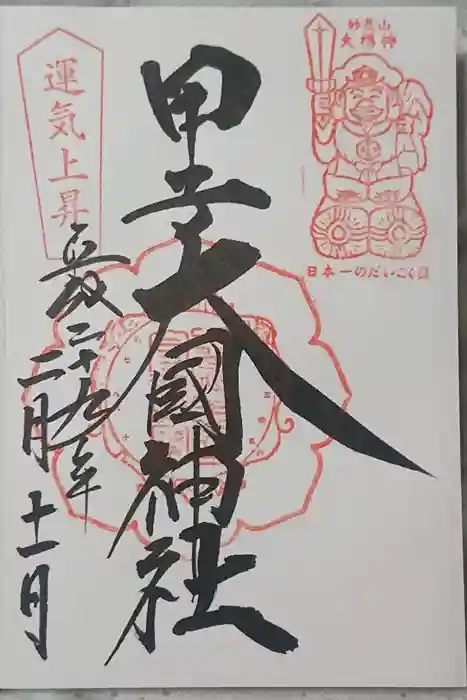 大楊神
日本一のだいこく様
甲子大國神社
運気上昇
平成二十九年
二月十一日